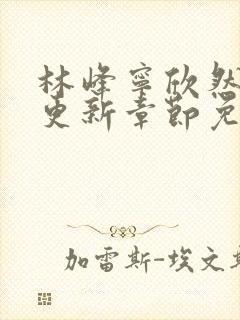 林峰寧欣然
更新章節免
加雷斯-埃文斯